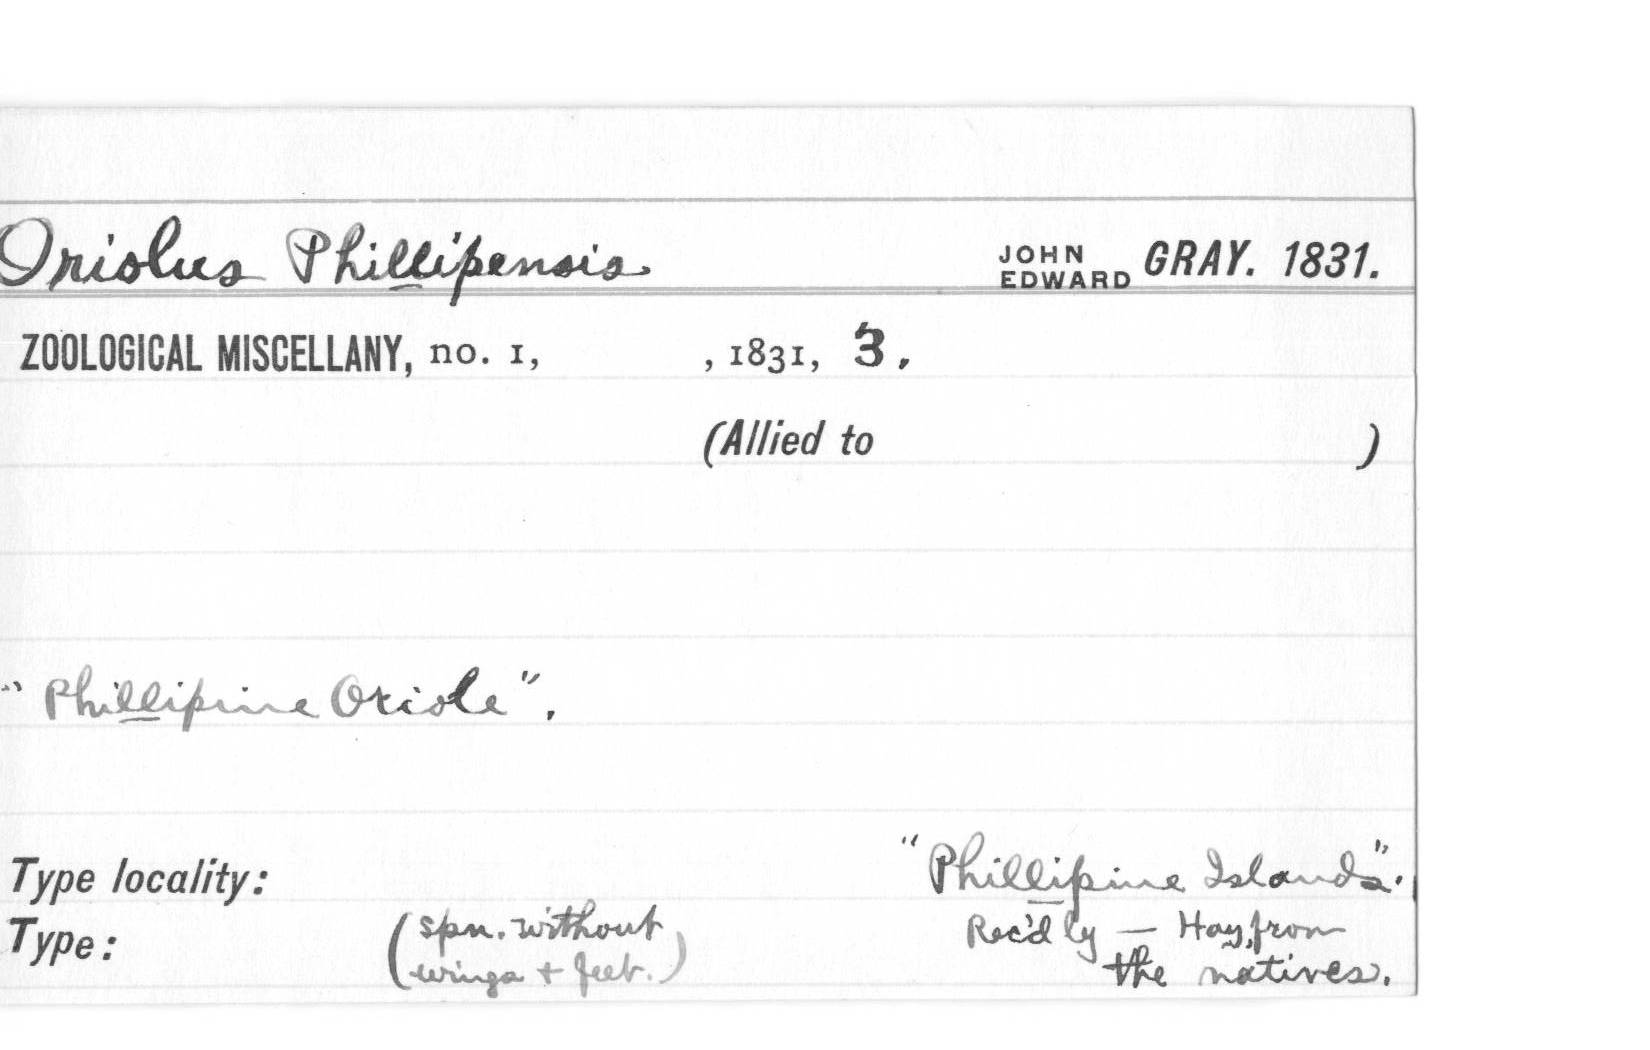 Oriolus Phillipensis JOHN EDWARD GRAY. 1831.
ZOOLOGICAL MISCELLANY, no. 1, , 1831, 3.
(Allied to )
"Phillipine Oriole".
Type locality: "Phillipine Islands".
Type: (spn. without wings + feet.) Rec'd by — Hay, from the natives.